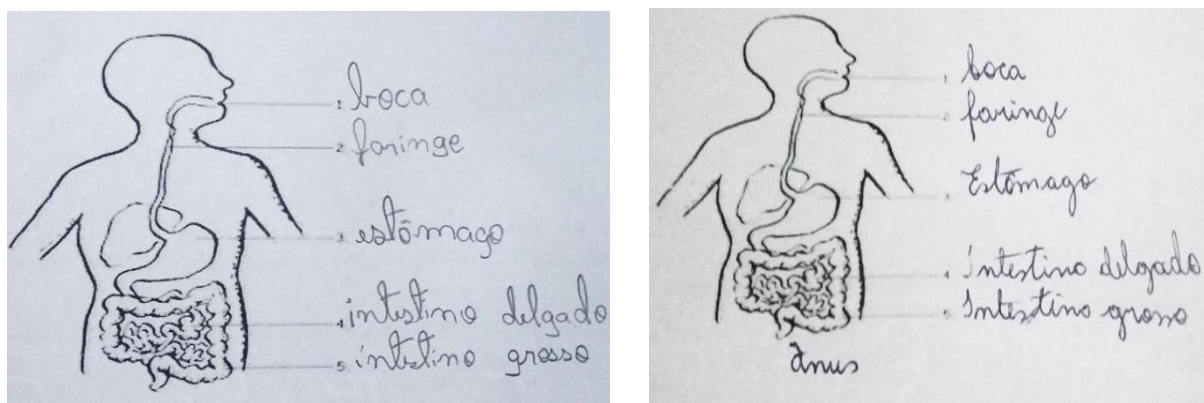 1. boca
2. faringe
3. estômago
4. intestino delgado
5. intestino grosso
1. boca
2. faringe
3. Estômago
4. Intestino delgado
5. Intestino grosso
ânus